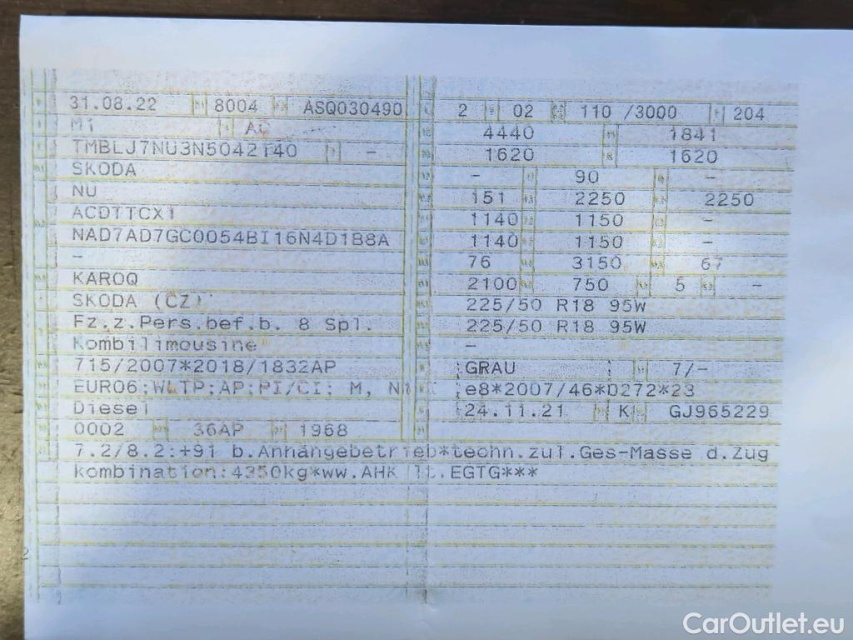 31.08.22 8004 ASQ030490
M1 AC
TMBLJ7NU3N5042140 -
SKODA
NU
ACDTTCX1
NAD7AD7GC0054BI16N4D1B8A
-
KAROQ
SKODA (CZ)
Fz.z.Pers.bef.b. 8 Spl.
Kombilimousine
715/2007*2018/1832AP
EURO6;WLTP;AP;PI/CI; M, N1
Diesel
0002 36AP 1968
2 02 110 /3000 204
4440 1841
1620 1620
- 90 -
151 2250 2250
1140 1150 -
1140 1150 -
76 3150 67
2100 750 5 -
225/50 R18 95W
225/50 R18 95W
-
GRAU 7/-
e8*2007/46*0272*23
24.11.21 K GJ965229
7.2/8.2:+91 b.Anhängebetrieb*techn.zul.Ges-Masse d.Zug
kombination:4350kg*ww.AHK lt.EGTG***
CarOutlet.eu